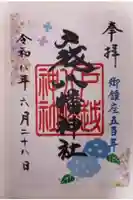 奉拝
御鎮座五百年
戸越八幡神社
令和八年六月二十八日